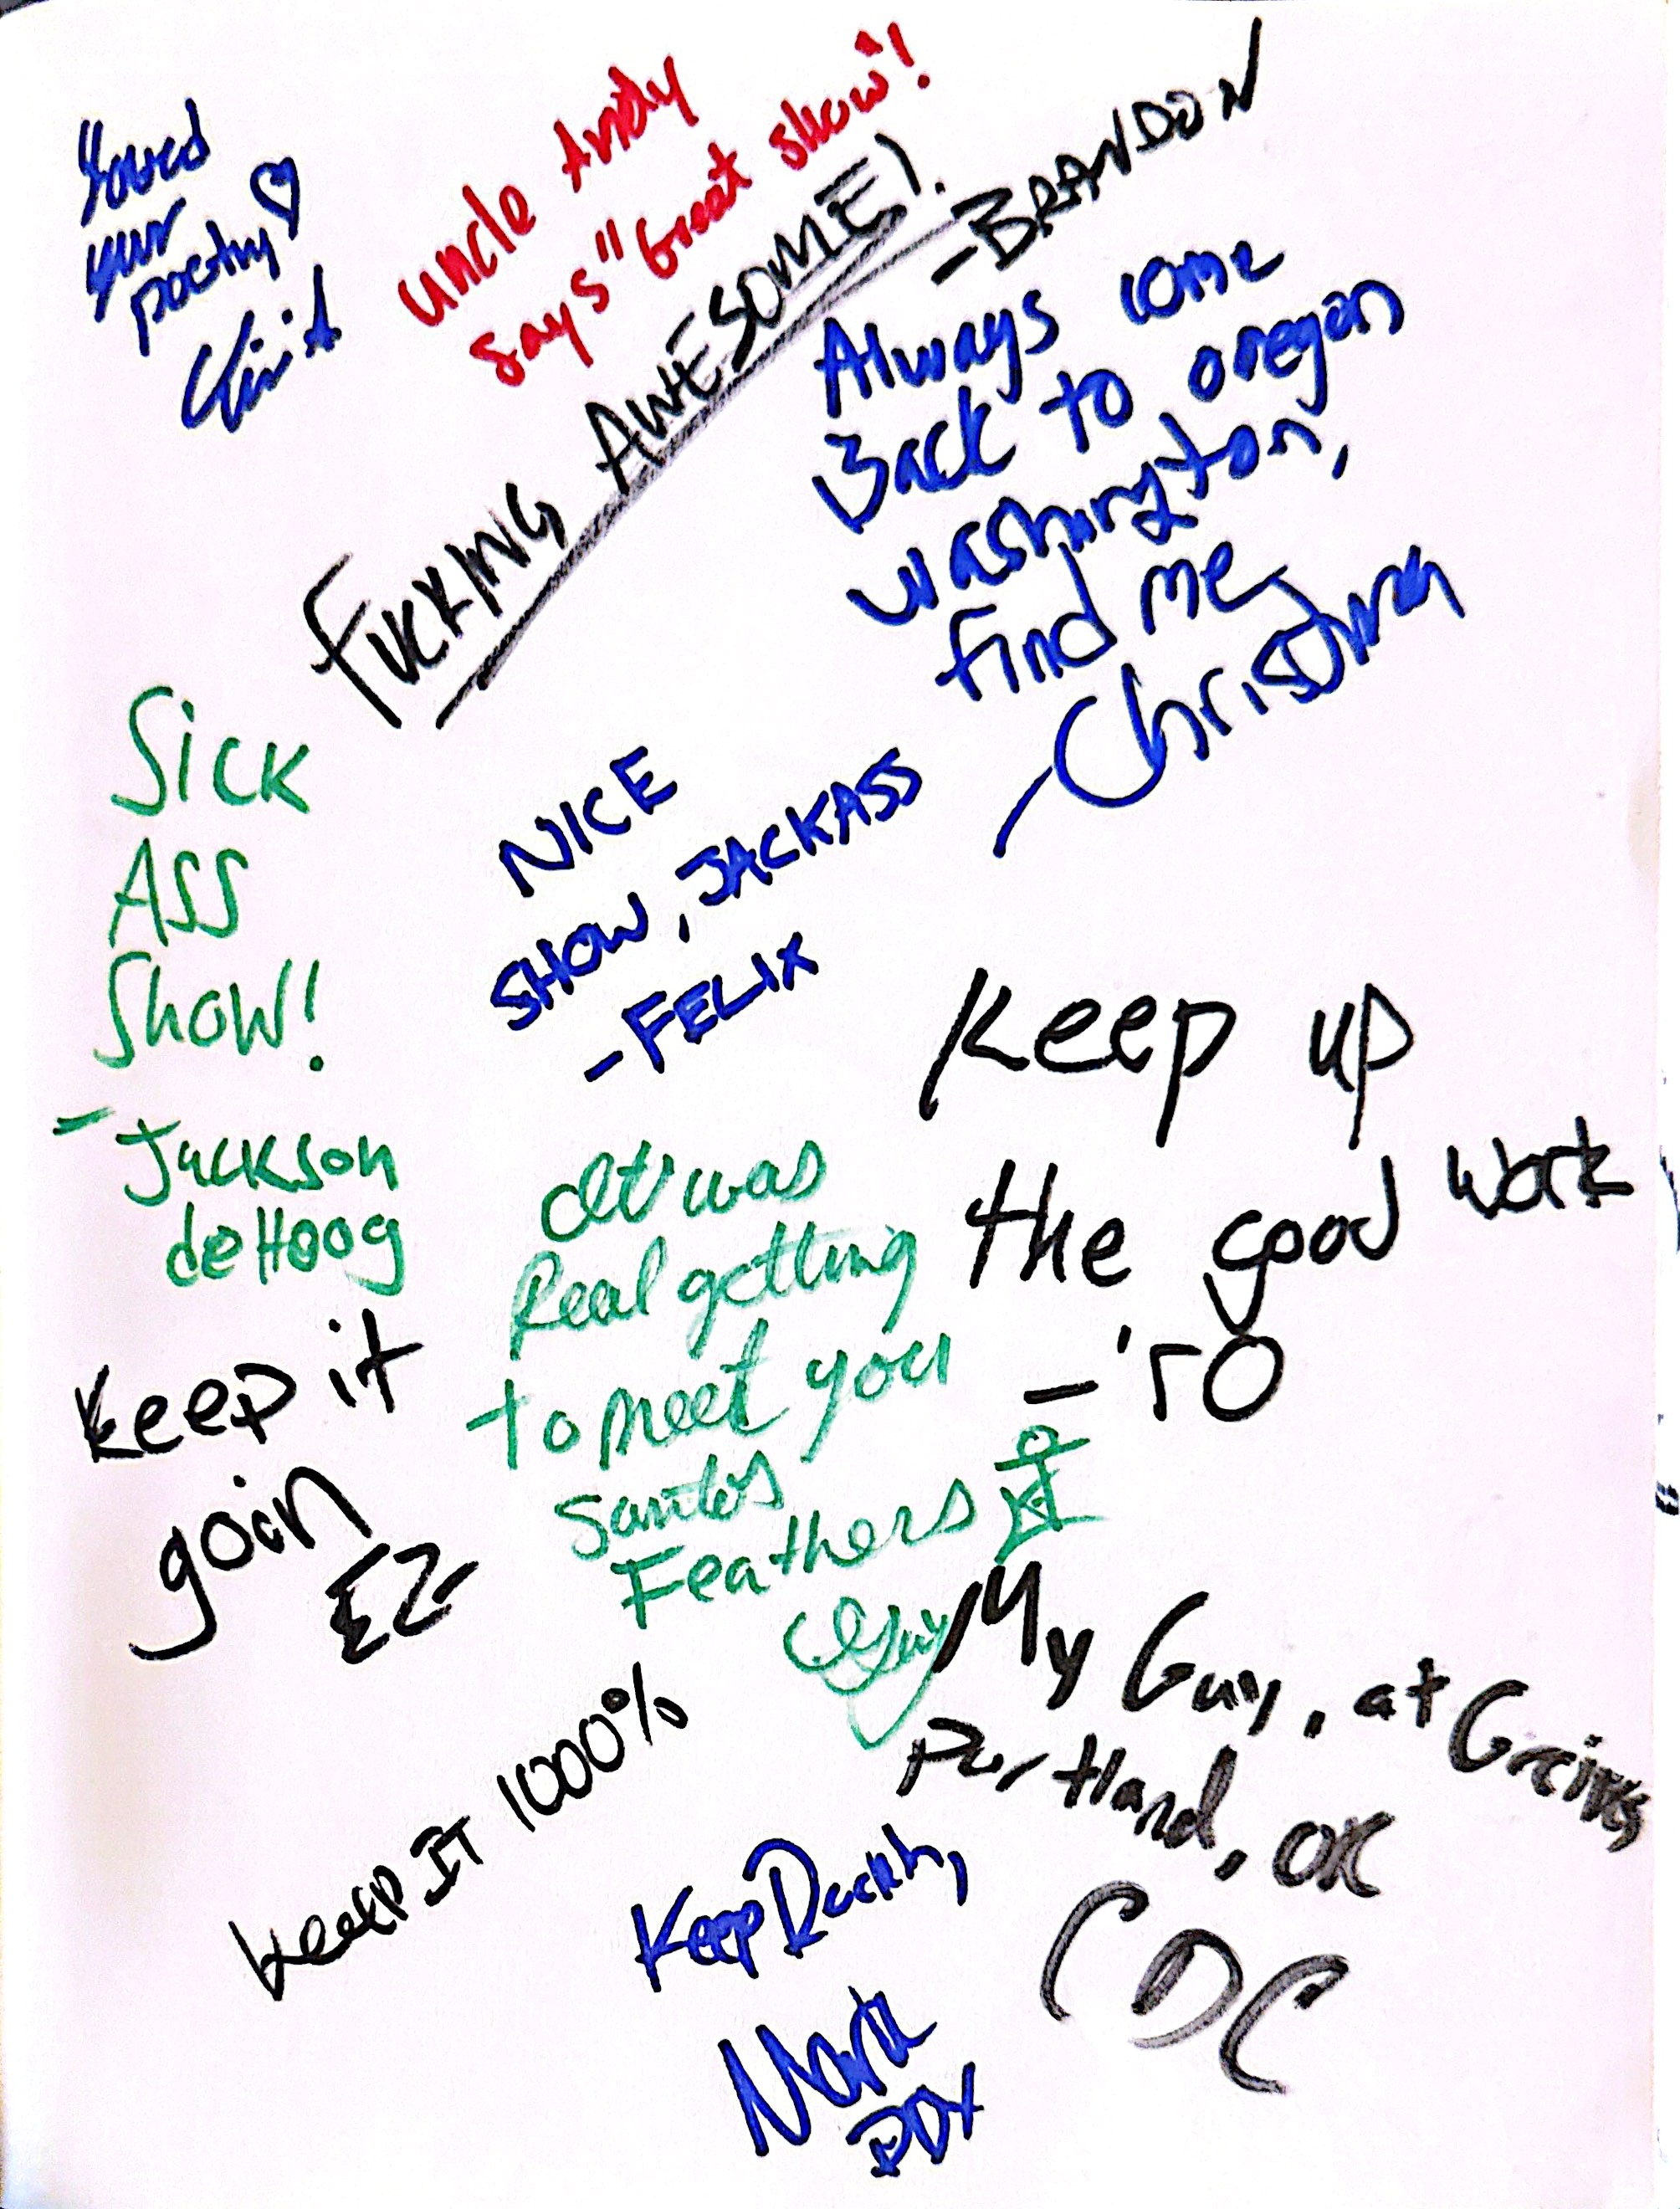 loved
your
poetry
uncle Andy
says "Great show"!
FUCKING AWESOME!
-BRANDON
Always come
Back to oregon
washington,
find me
-Christina
SICK
ASS
SHOW!
- Jackson
deHoog
NICE
SHOW, JACKASS
-FELIX
Keep up
the good work
- 'TO
It was
Real getting
to meet you
Santos
Feathers
Guy
Keep it
goin
EZ
My Guy, at
Portland, OR
CDC
keep IT 1000%
Keep Rockin,
Mark
PDX